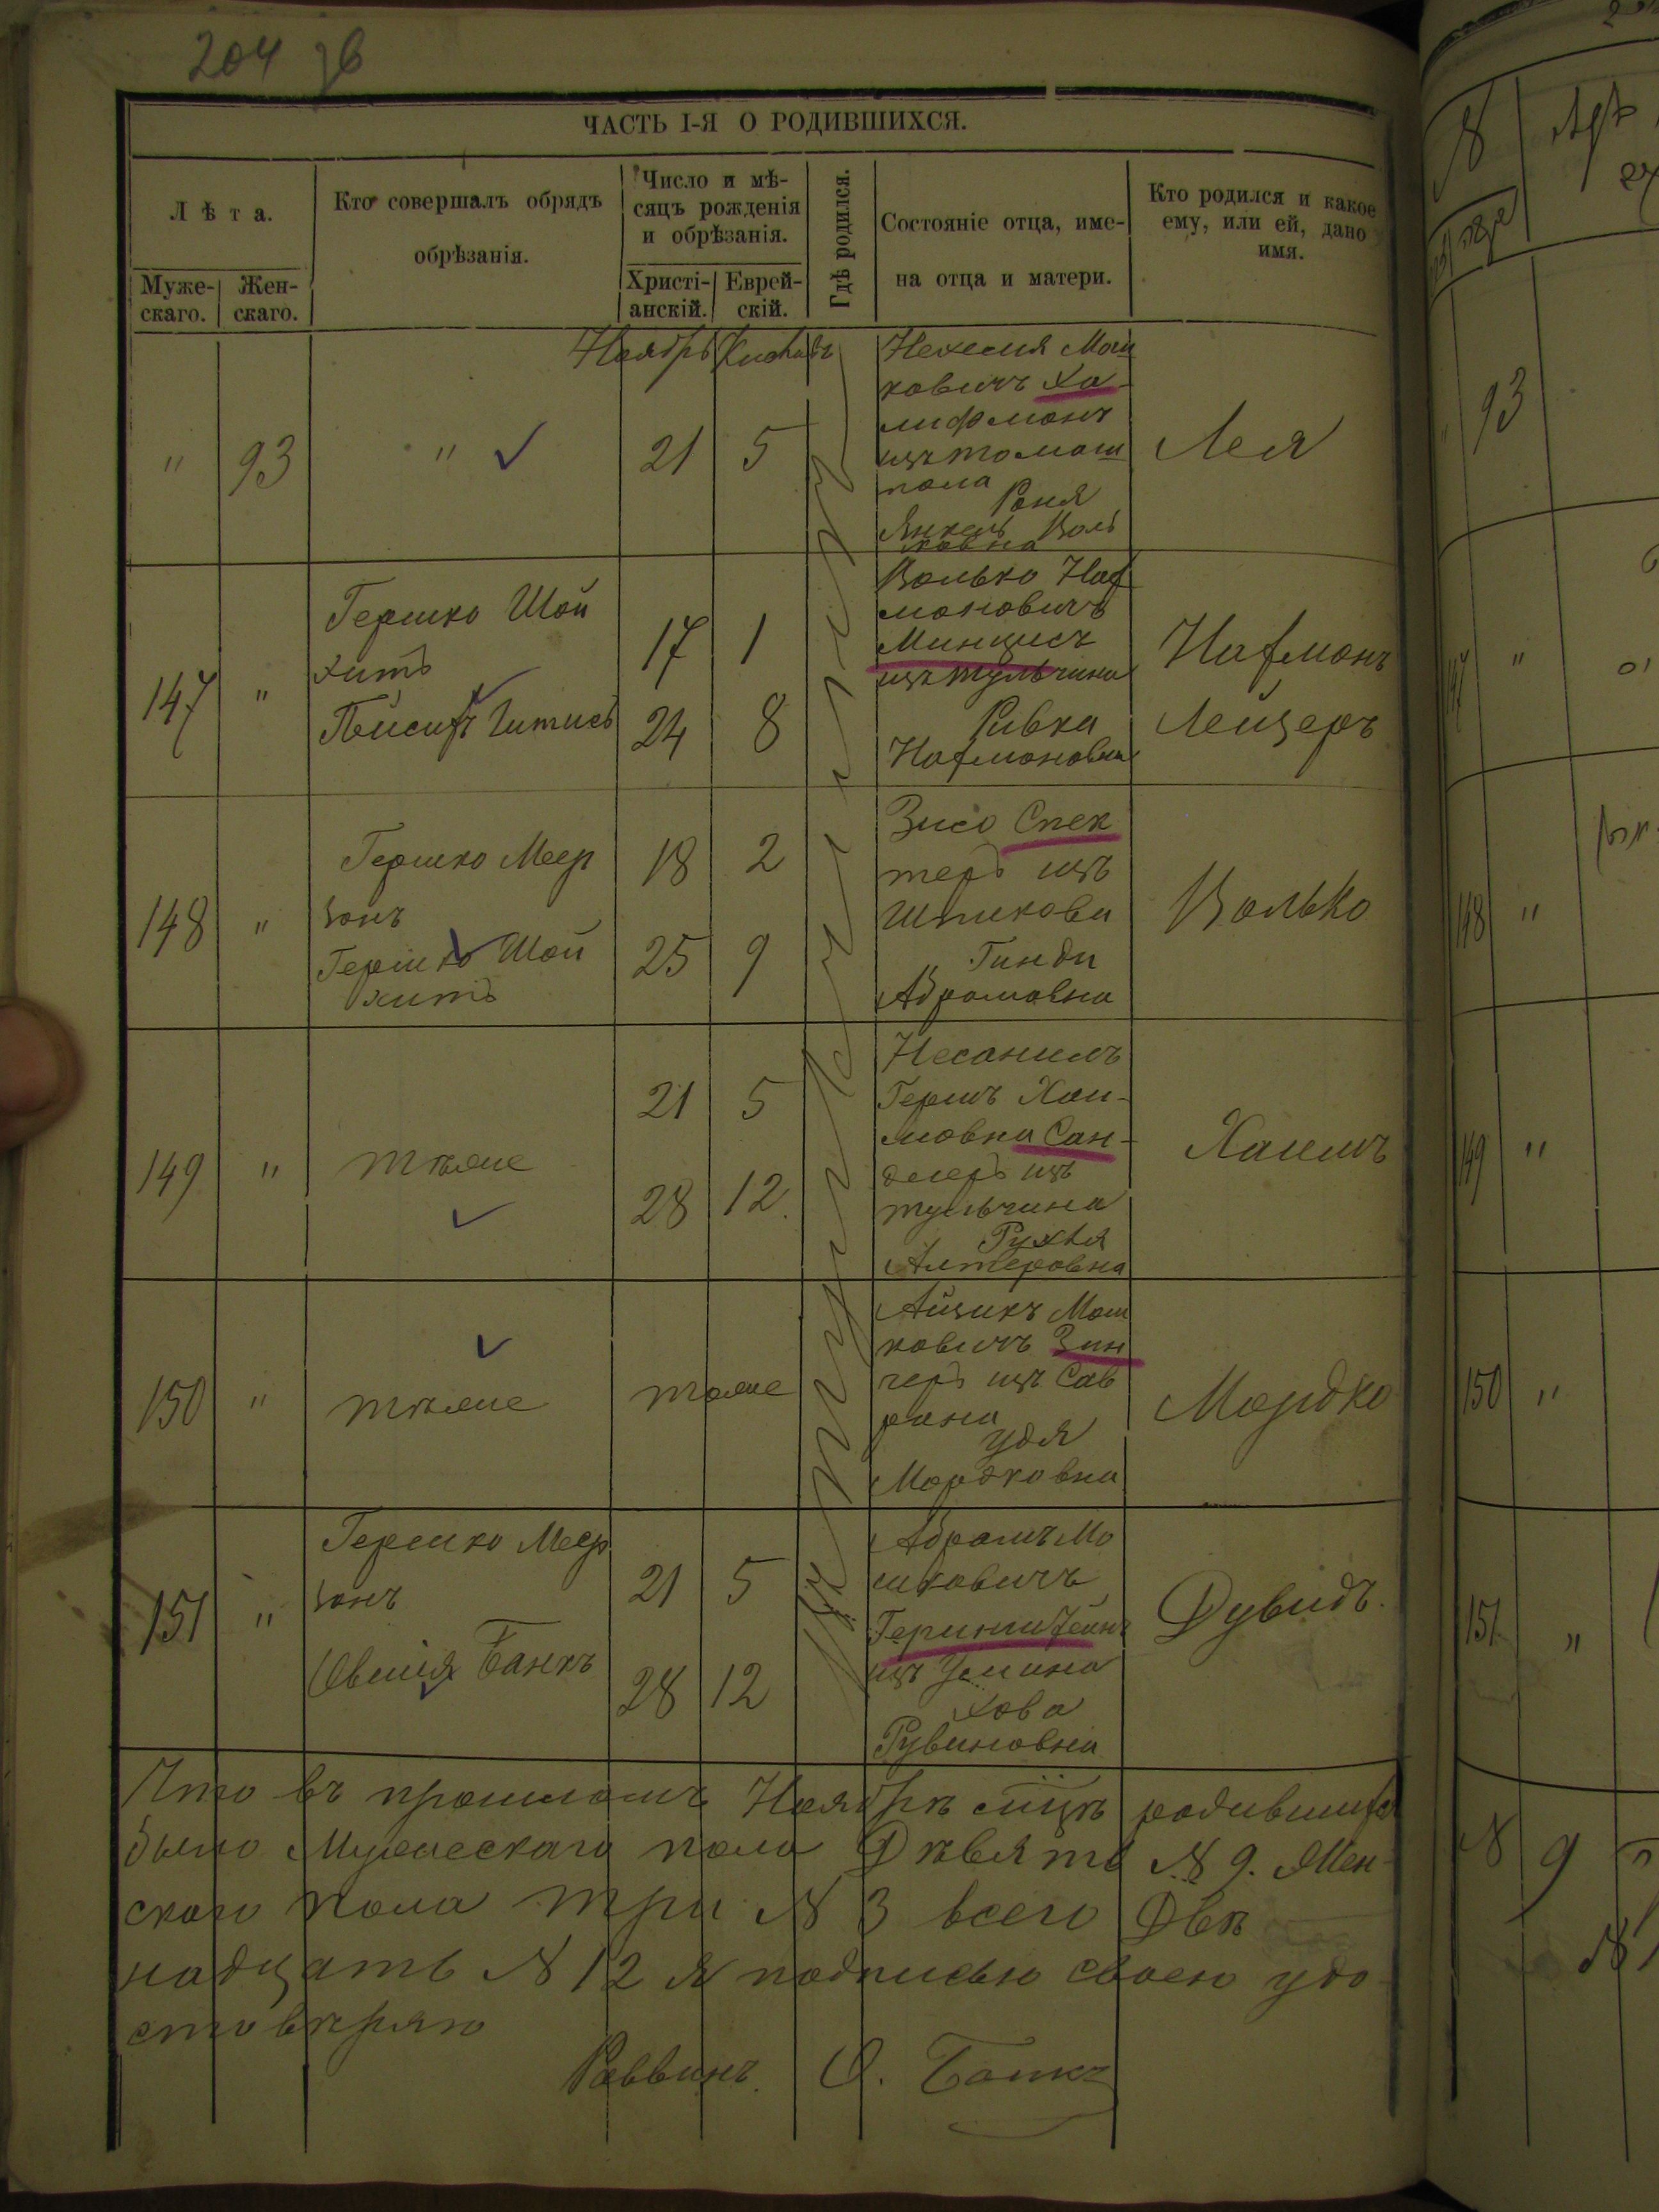 204 зв
ЧАСТЬ I-Я О РОДИВШИХСЯ.
Лѣта.
Муже-
скаго.
Жен-
скаго.
Кто совершалъ обрядъ
обрѣзанія.
Число и мѣ-
сяцъ рожденія
и обрѣзанія.
Христі-
анскій.
Еврей-
скій.
Гдѣ родился.
Состояніе отца, име-
на отца и матери.
Кто родился и какое
ему, или ей, дано
имя.
Ноябрь Кислевъ
" 93 " 21 5
Нехемія Мош
ковичъ Ха-
лифманъ
изъ томаш
пола
Роня
Янкель Воль
ковна
Лея
147 "
Гершко Шой
хитъ
17 1
24 8
Волько Нах
мановичъ
изъ тульчина
Ривка
Нахмановна
Нахманъ
Лейзеръ
148 "
Гершко Меер
зонъ
Гершко Шой
хитъ
18 2
25 9
Зисо Спек
теръ изъ
Шпикова
Гинди
Абрамовна
Волько
149 "
тѣже
21 5
28 12
Несанилъ
Гершъ Хаи-
мовна Сан-
длеръ изъ
тульчина
Рухля
Алтеровна
Хаимъ
150 "
тѣже
тоже
Айзикъ Мош
ковичъ Зин
геръ изъ Сав
рани
Удя
Мордковна
Мордко
151 "
Гершко Меер
зонъ
Овшія Банкъ
21 5
28 12
Абрамъ Мо
шковичъ
изъ Умана
Хова
Рувиновна
Дувидъ.
Что въ прошломъ Ноябрѣ мцѣ родившихся
было Мужескаго пола Дѣвять № 9. Жен-
скаго пола три № 3 всего Двѣ
надцать № 12 я подписью своею удо
стовѣряю
Раввинъ О. Банкъ
93
147 "
148 "
149 "
150 "
151 "
№ 9